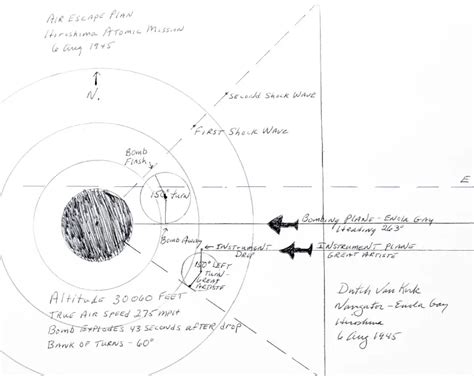 Air Escape Plan
Hiroshima Atomic Mission
6 Aug 1945
N.
Second Shock Wave
First Shock Wave
Bomb
Flash
150° Turn
E
Bombing Plane - Enola Gay
Heading 263°
Bomb Away
Instrument
Drop
Instrument Plane
Great Artiste
150° Left
Turn
Great
Artiste
Altitude 30060 Feet
True Air Speed 275 mph
Bomb Explodes 43 seconds after drop
Bank of Turns - 60°
Dutch Van Kirk
Navigator - Enola Gay
Hiroshima
6 Aug 1945